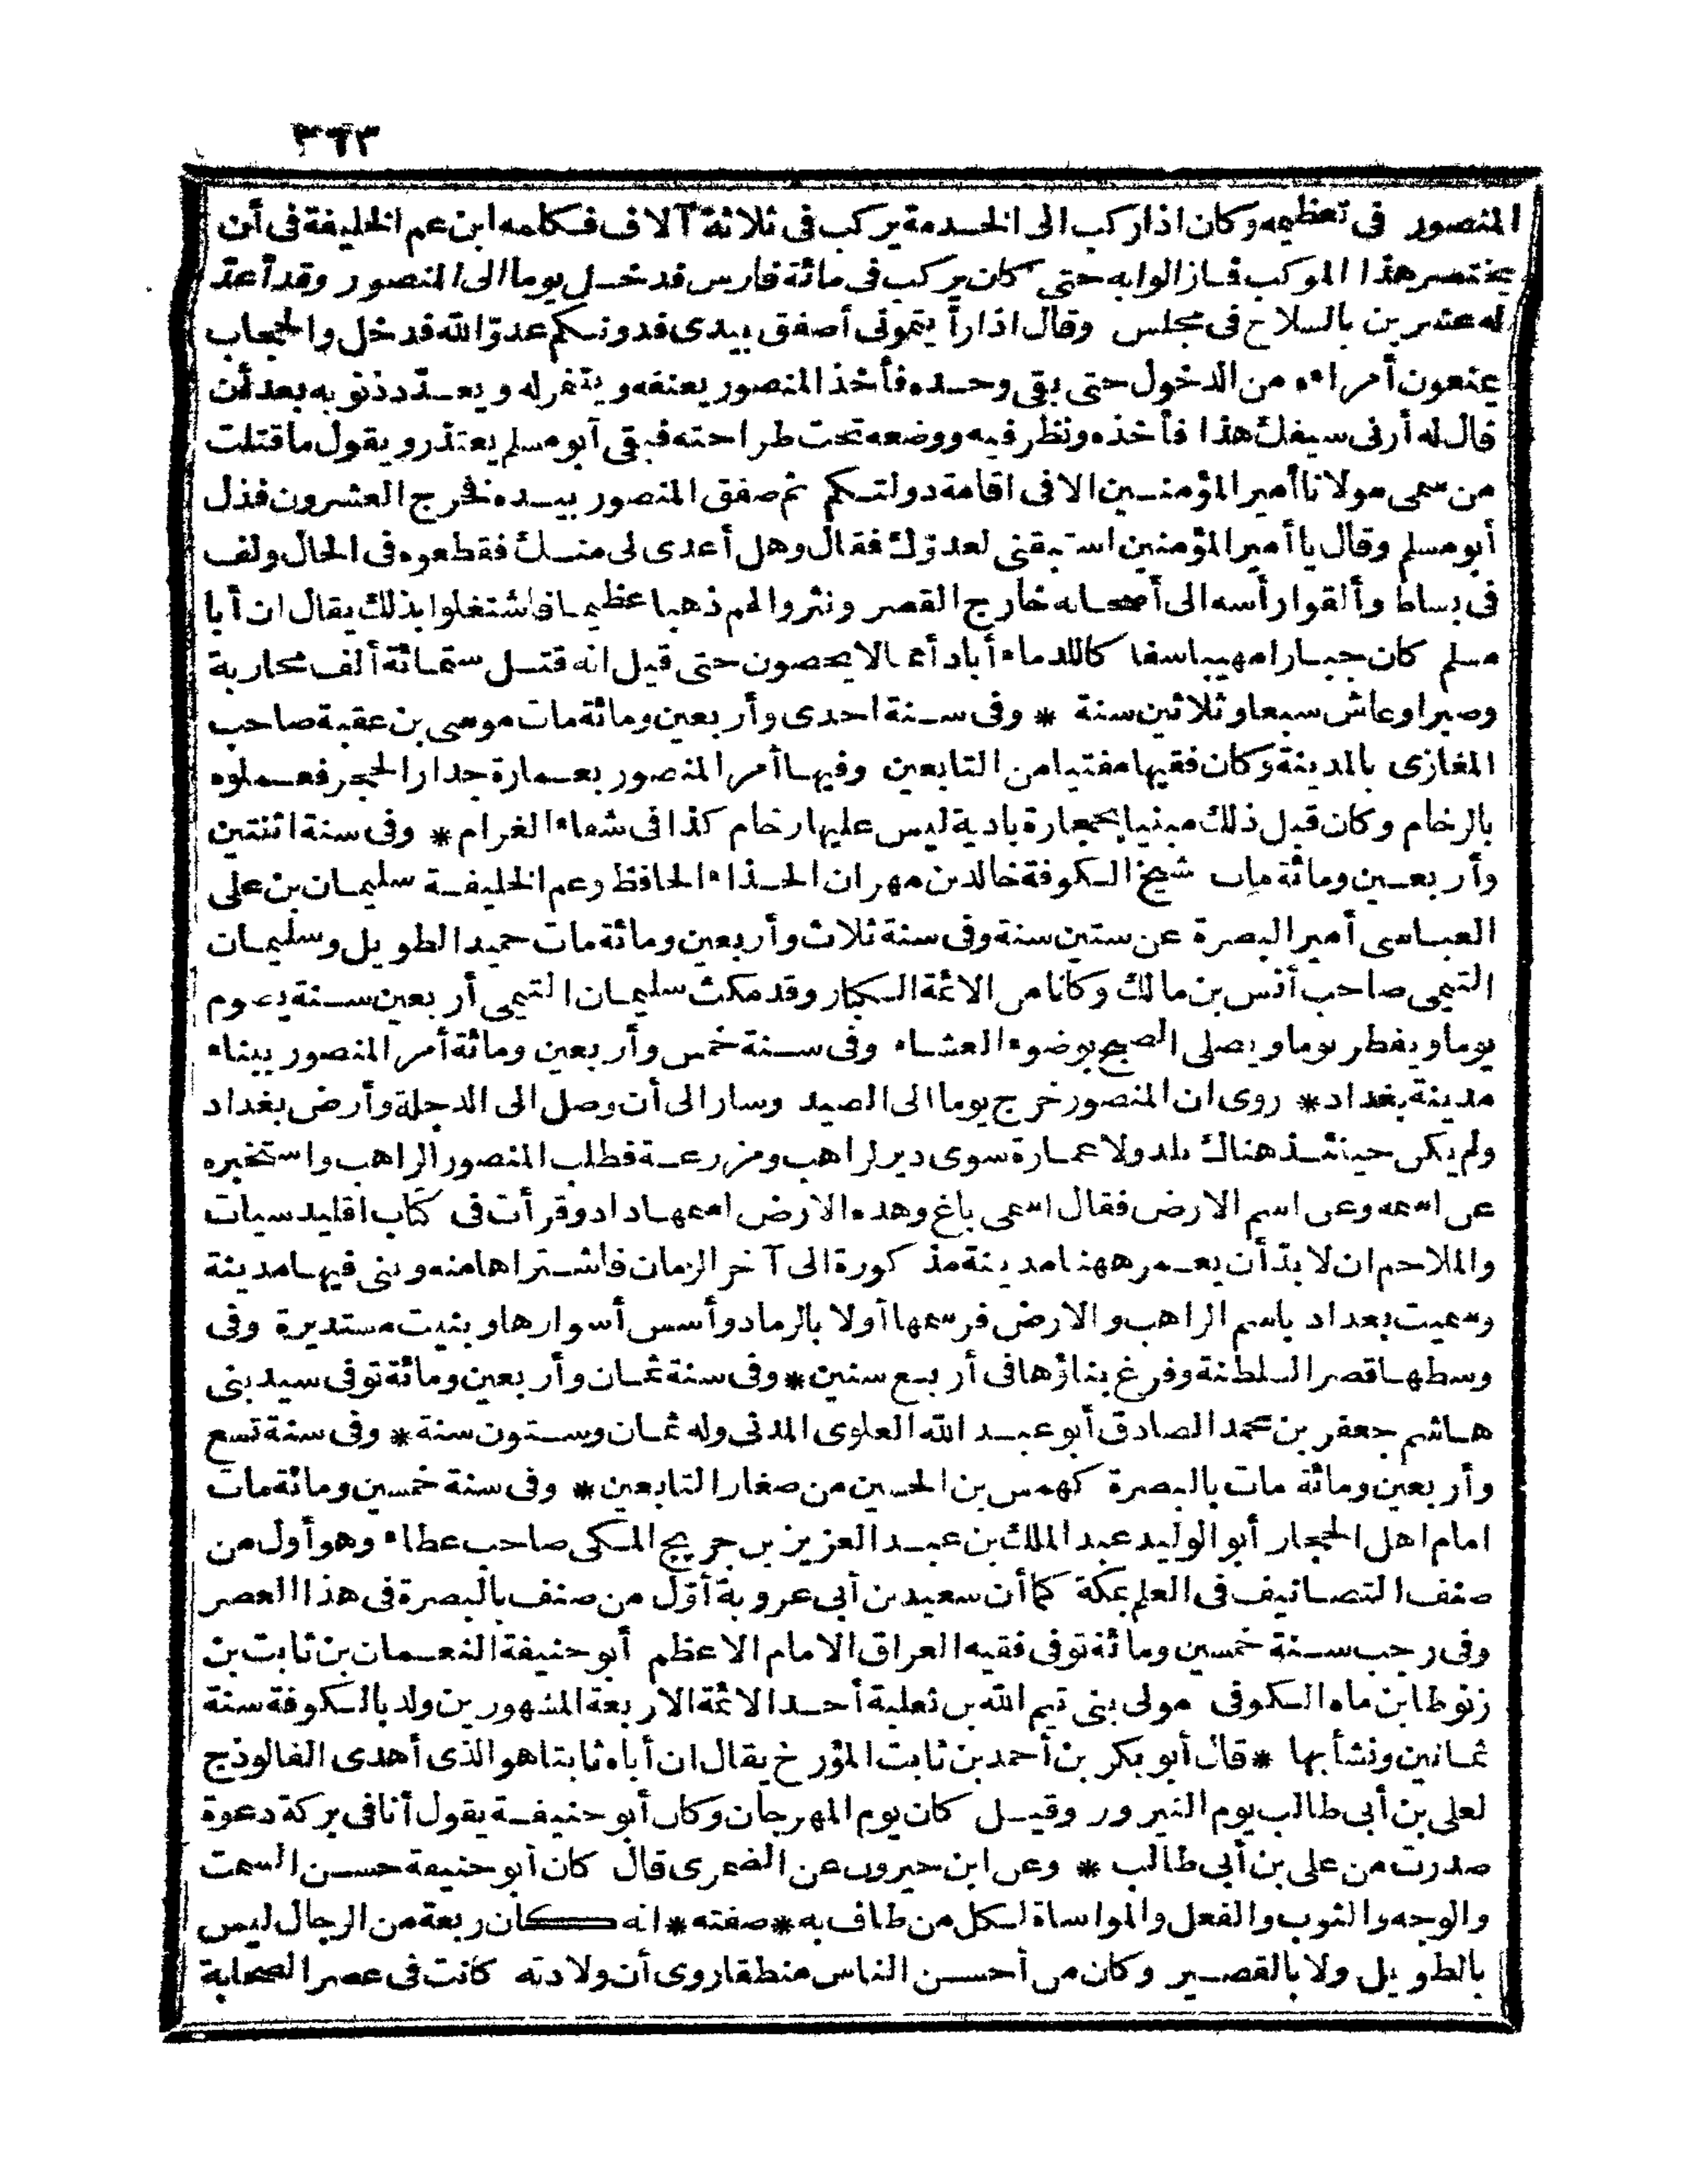 ٣٦٣
المنصور فى تعظيمه وكان اذا ركب الى الخدمة يركب فى ثلاثة آلاف فكلمه ابن عم الخليفة فى أن
يختصر هذا الموكب فازالوا به حتى كان يركب فى مائة فارس فدخل يوما الى المنصور وقد أعدّ
له عشرين بالسلاح فى مجلس وقال اذا رأيتمونى أصفق بيدى فدونكم عدوّ الله فدخل والحجاب
يمنعون أمراءه من الدخول حتى بقى وحده فأخذ المنصور يعنفه ويتنمر له ويعدّد ذنوبه بعد أن
قال له أرنى سيفك هذا فأخذه ونظر فيه ووضعه تحت طراحته فبقى أبو مسلم يعتذر ويقول ما قتلت
من سمى مولانا أمير المؤمنين الا فى اقامة دولتكم ثم صفق المنصور بيده فخرج العشرون فذل
أبو مسلم وقال يا أمير المؤمنين استبقنى لعدوّك فقال وهل أعدى لى منك فقطعوه فى الحال ولف
فى بساط وألقوا رأسه الى أصحابه خارج القصر ونثروا لهم ذهبا عظيما فاشتغلوا بذلك يقال ان أبا
مسلم كان جبارا مهيبا سفاكا للدماء أباد أمما لا يحصون حتى قيل انه قتل ستمائة ألف محاربة
وصبرا وعاش سبعا وثلاثين سنة * وفى سنة احدى وأربعين ومائة مات موسى بن عقبة صاحب
المغازى بالمدينة وكان فقيها مفتيا من التابعين وفيها أمر المنصور بعمارة جدار الحجر فعملوه
بالرخام وكان قبل ذلك مبنيا بحجارة بادية ليس عليها رخام كذا فى شفاء الغرام * وفى سنة اثنتين
وأربعين ومائة مات شيخ الكوفة خالد بن مهران الحذاء الحافظ وعم الخليفة سليمان بن على
العباسى أمير البصرة عن ستين سنة وفى سنة ثلاث وأربعين ومائة مات حميد الطويل وسليمان
التيمى صاحب أنس بن مالك وكانا من الائمة الكبار وقد مكث سليمان التيمى أربعين سنة يصوم
يوما ويفطر يوما ويصلى الصبح بوضوء العشاء وفى سنة خمس وأربعين ومائة أمر المنصور ببناء
مدينة بغداد * روى ان المنصور خرج يوما الى الصيد وسار الى أن وصل الى الدجلة وأرض بغداد
ولم يكن حينئذ هناك بلد ولا عمارة سوى دير لراهب ومزرعة فطلب المنصور الراهب واستخبره
عن اسمه وعن اسم الارض فقال اسمى باغ وهذه الارض اسمها داد وقرأت فى كتاب اقليد سيات
والملاحم ان لا بدّ أن يعمر ههنا مدينة مذكورة الى آخر الزمان فاشتراها منه وبنى فيها مدينة
وسميت بغداد باسم الراهب والارض فرسمها أولا بالرماد وأسس أسوارها وبنيت مستديرة وفى
وسطها قصر السلطنة وفرغ بناؤها فى أربع سنين * وفى سنة ثمان وأربعين ومائة توفى سيد بنى
هاشم جعفر بن محمد الصادق أبو عبد الله العلوى المدنى وله ثمان وستون سنة * وفى سنة تسع
وأربعين ومائة مات بالبصرة كهمس بن الحسين من صغار التابعين * وفى سنة خمسين ومائة مات
امام اهل الحجار أبو الوليد عبد الملك بن عبد العزيز بن جريج المكى صاحب عطاء وهو أول من
صنف التصانيف فى العلم بمكة كما أن سعيد بن أبى عروبة أوّل من صنف بالبصرة فى هذا العصر
وفى رجب سنة خمسين ومائة توفى فقيه العراق الامام الاعظم أبو حنيفة النعمان بن ثابت بن
زنوطا ابن ماه الكوفى مولى بنى تيم الله بن ثعلبة أحد الائمة الاربعة المشهورين ولد بالكوفة سنة
ثمانين ونشأ بها * قال أبو بكر بن أحمد بن ثابت المؤرخ يقال ان أباه ثابتا هو الذى أهدى الفالوذج
لعلى بن أبى طالب يوم النيرور وقيل كان يوم المهرجان وكان أبو حنيفة يقول أنا فى بركة دعوة
صدرت من على بن أبى طالب * وعن ابن حيرون عن الضمرى قال كان أبو حنيفة حسن السمت
والوجه والثوب والفعل والمواساة لكل من طاف به * صفته * انه كان ربعة من الرجال ليس
بالطويل ولا بالقصير وكان من أحسن الناس منطقا روى أن ولادته كانت فى عصر الصحابة